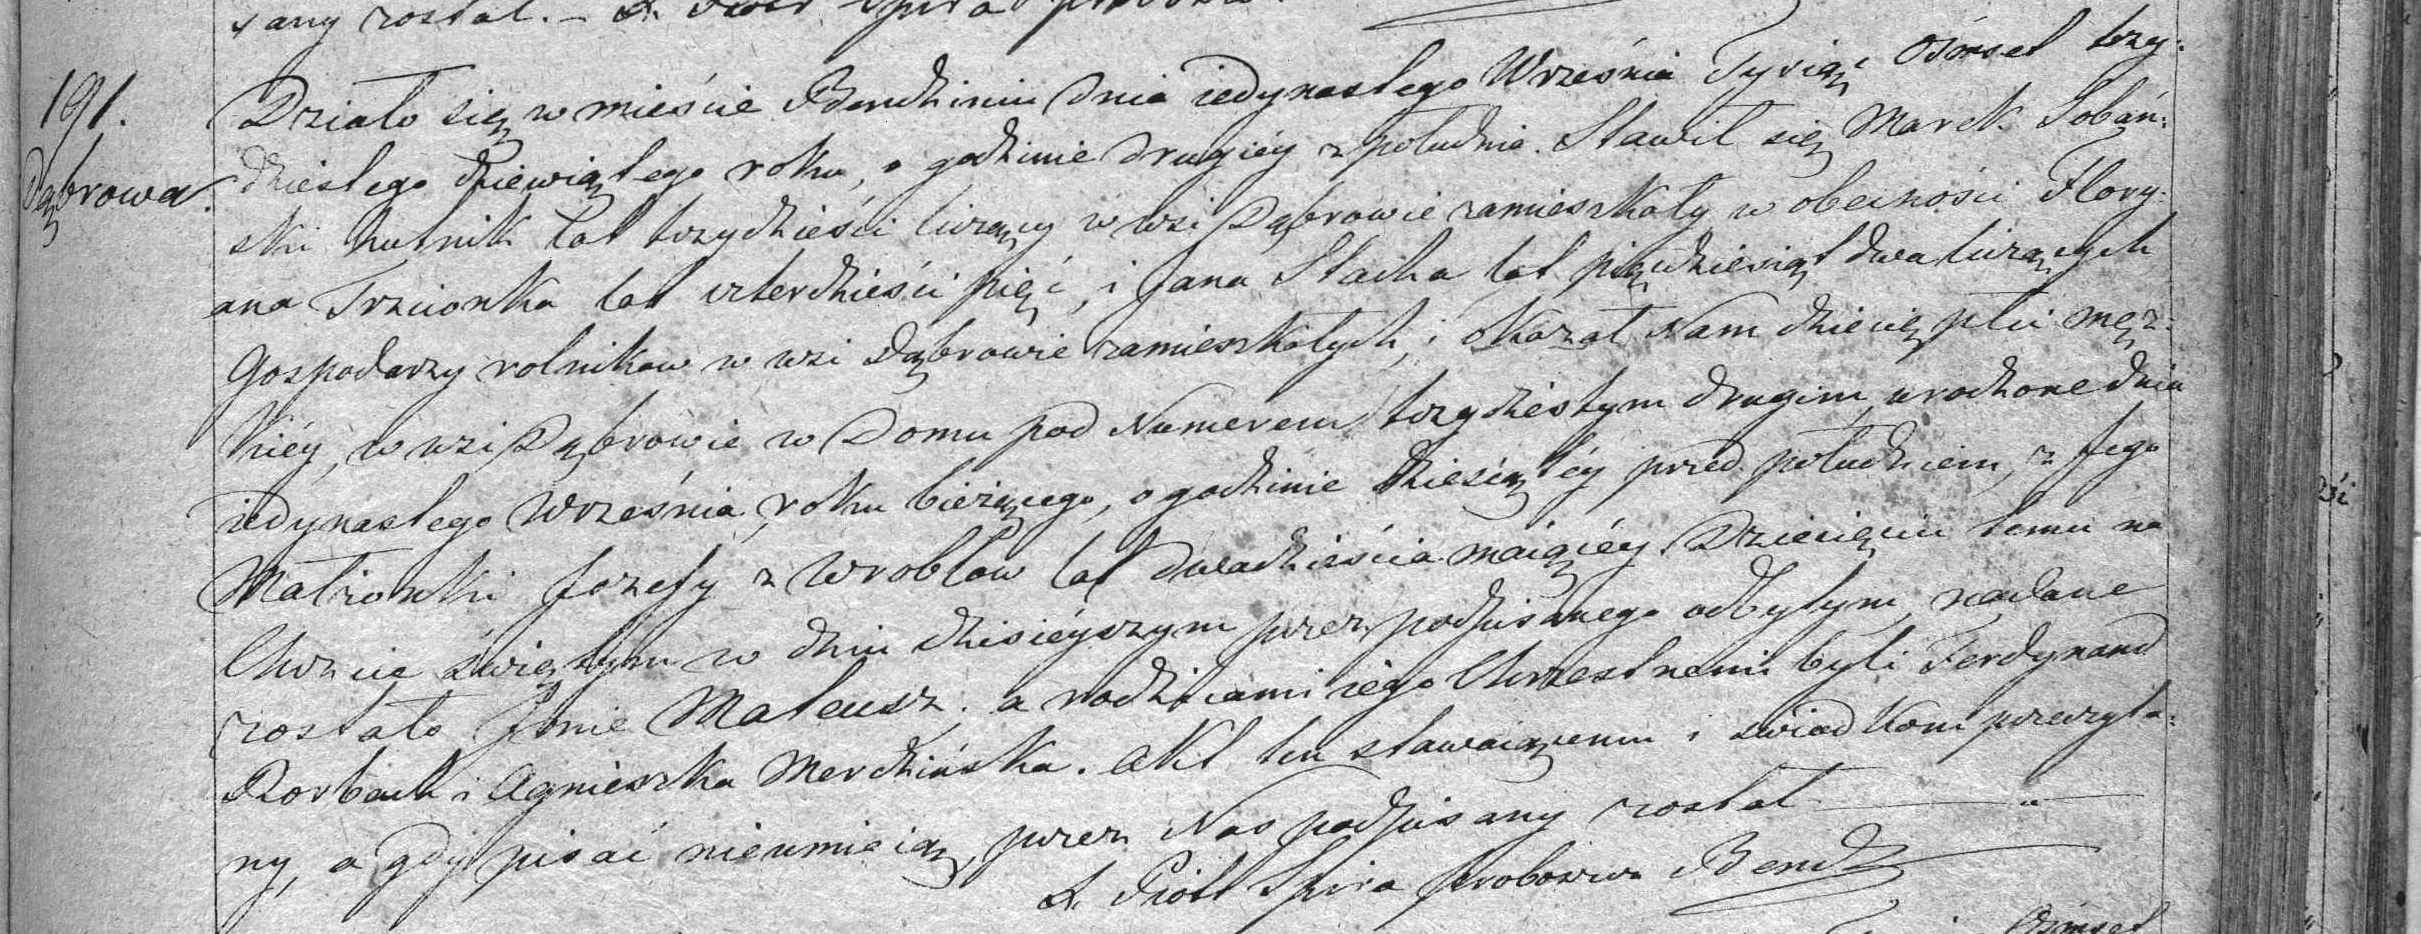 sany został. –
191.
Dąbrowa.
Działo się w mieście Bendzinie dnia iedynastego Września Tysiąc Ośmset trzy-
dziestego dziewiątego roku, o godzinie drugiéy z południa. Stawił się Marek Sobań-
ski hutnik lat trzydzieści liczący w wsi Dąbrowie zamieszkały w obecności Flory-
ana Trzcionka lat czterdzieści pięć, i Jana Stacha lat pięćdziesiąt dwa liczących
Gospodarzy rolnikow w wsi Dąbrowie zamieszkałych, i okazał Nam dziecię płci męz-
kiéy, w wsi Dąbrowie w Domu pod Numerem trzydziestym drugim urodzone dnia
iedynastego Września roku bieżącego, o godzinie dziesiątéy przed południem, z Jego
Małżonki Jozefy z Wroblow lat dwadzieścia maiącéy. Dziecięciu temu na
Chrzcie świętym w dniu dzisiéyszym przez podpisanego odbytym, nadane
zostało Jmie Mateusz. a rodzicami iego Chrzestnemi byli Ferdynand
Rorbach i Agnieszka Merdzińska. Akt ten stawaiącemu i swiadkom przeczyta-
ny, a gdy pisać nieumieią, przez Nas podpisany został
X. Piotr Spira Proboszcz Bendz
Ośmset